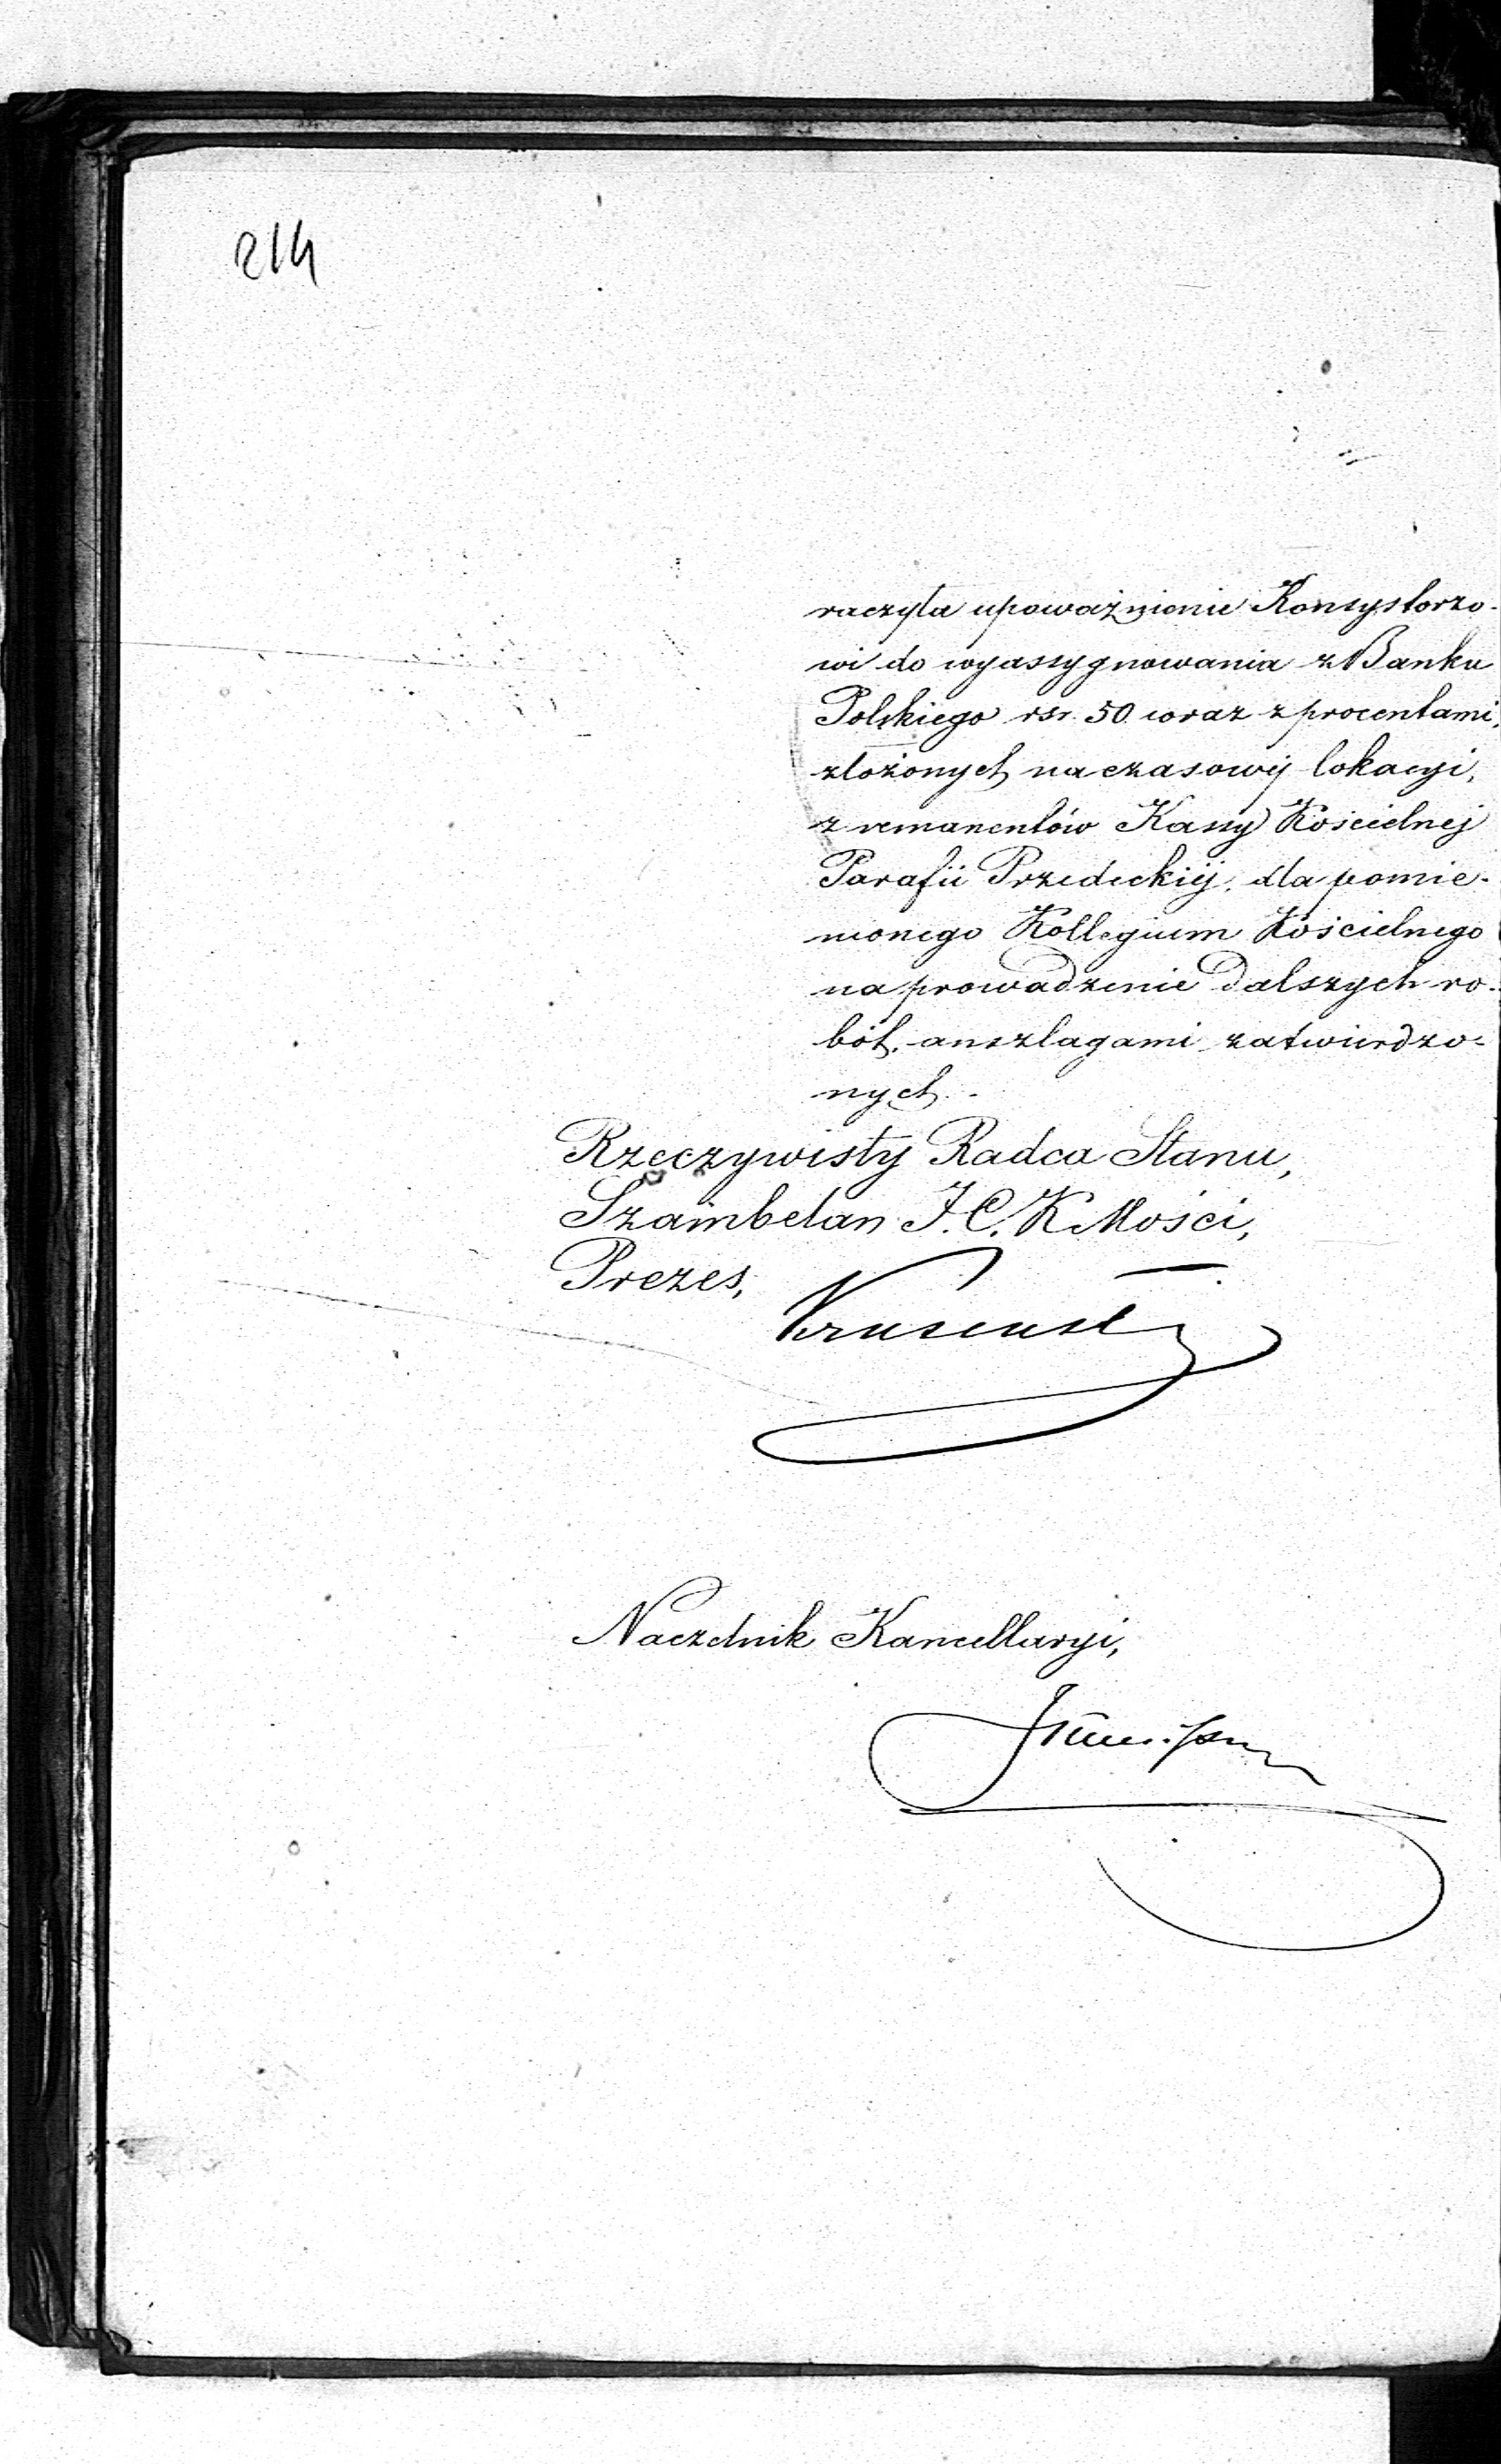 214
raczyła upoważnienie Konsystorzo-
wi do wyassygnowania z Banku
Polskiego rsr. 50 wraz z procentami,
złożonych na czasowéj lokacyi,
z remanentów Kassy Kościelnej
Parafii Przedeckiéj, dla pomie-
nionego Kollegium Kościelnego
na prowadzenie dalszych ro-
bót, anszlagami zatwierdzo-
nych.
Rzeczywisty Radca Stanu,
Szambelan J. C. K Mości,
Prezes,
Naczelnik Kancellaryi,